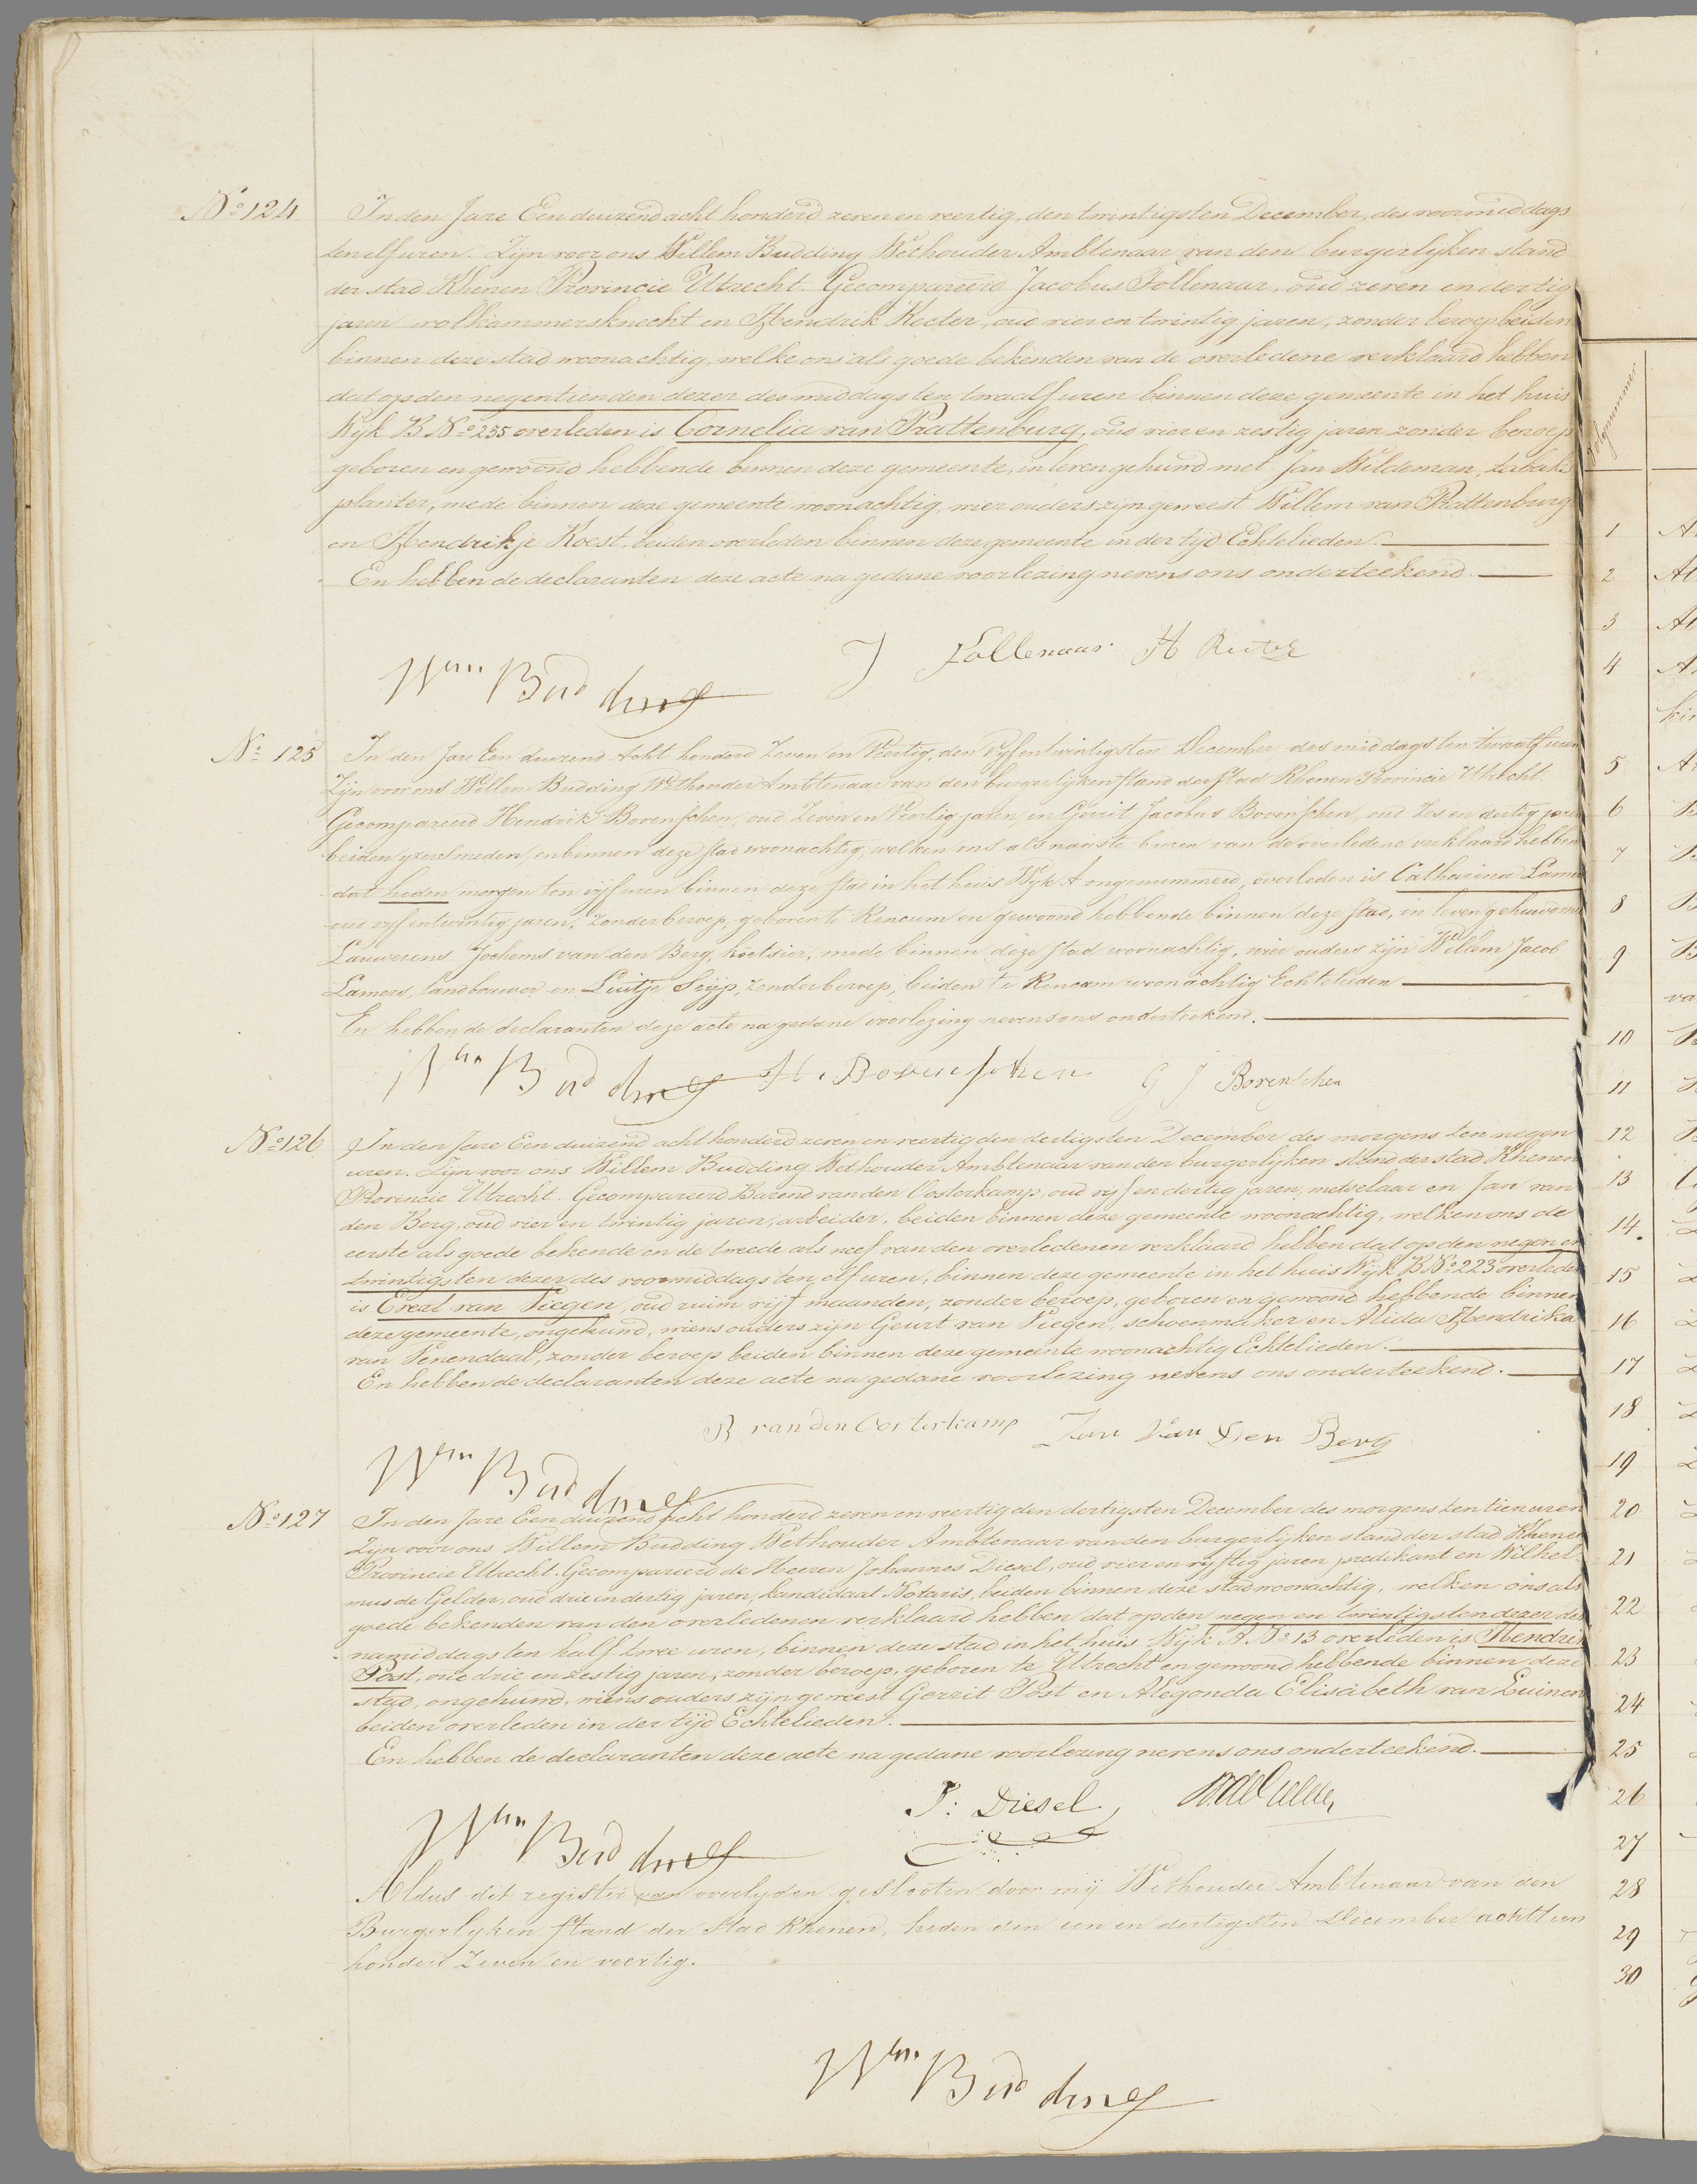 No 124
In den Jare Een duizend acht honderd zeven en veertig, den twintigsten December, des voormiddags
ten elf uren. Zijn voor ons Willem Budding Wethouder Ambtenaar van den burgerlijken stand
der stad Rhenen Provincie Utrecht. Gecompareerd Jacobus Tollenaar, oud zeven en dertig
jaren wolkammersknecht en Hendrik Reeter, oud vier en twintig jaren, zonder beroep beiden
binnen deze stad woonachtig, welke ons als goede bekenden van de overledene verklaard hebben
dat op den negentienden dezer des middags ten twaalf uren binnen deze gemeente in het huis
Wijk B No 235 overleden is Cornelia van Prattenburg, oud vier en zestig jaren zonder beroep
geboren en gewoond hebbende binnen deze gemeente, in leven gehuwd met Jan Wildeman, tabaks
planter, mede binnen deze gemeente woonachtig, wier ouders zijn geweest Willem van Prattenburg
en Hendrikje Roest, beiden overleden binnen deze gemeente in der tijd Echtelieden.
En hebben de declaranten deze acte na gedane voorlezing nevens ons onderteekend.
J Tollenaar H Reeter
Wm Budding
No 125
In den Jare Een duizend Acht honderd Zeven en Veertig, den Vijfentwintigsten December, des middags ten twaalf uren
Zijn voor ons Willem Budding Wethouder Ambtenaar van den burgerlijken stand der stad Rhenen Provincie Utrecht.
Gecompareerd Hendrik Bovenschen, oud Zeven en Veertig jaren, en Gerrit Jacobus Bovenschen, oud Zes en dertig jaren
beiden ijzersmeden, en binnen deze stad woonachtig, welken ons als naaste buren van de overledene verklaard hebben
dat heden morgen ten vijf uren binnen deze stad in het huis Wijk A ongenummerd, overleden is Catharina Lamers
oud vijf en twintig jaren, Zonder beroep, geboren te Rencum en gewoond hebbende binnen deze stad, in leven gehuwd met
Lauwerens Jochems van den Berg, koetsier, mede binnen deze stad woonachtig, wier ouders zijn Willem Jacob
Lamers, landbouwer en Luitje Seijp, Zonder beroep, beiden te Rencum woonachtig Echtelieden
En hebben de declaranten deze acte na gedane voorlezing nevens ons onderteekend.
Wm Budding H. Bovenschen G J Bovenschen
No 126
In den Jare Een duizend acht honderd zeven en veertig den dertigsten December des morgens ten negen
uren. Zijn voor ons Willem Budding Wethouder Ambtenaar van den burgerlijken stand der stad Rhenen
Provincie Utrecht. Gecompareerd Barend van den Oosterkamp, oud vijf en dertig jaren, metselaar en Jan van
den Berg, oud vier en twintig jaren, arbeider, beiden binnen deze gemeente woonachtig, welken ons de
eerste als goede bekende en de tweede als neef van den overledenen verklaard hebben dat op den negen en
twintigsten dezer des voormiddags ten elf uren, binnen deze gemeente in het huis Wijk B No 223 overleden
is Evert van Viegen, oud ruim vijf maanden, zonder beroep, geboren en gewoond hebbende binnen
deze gemeente, ongehuwd, wiens ouders zijn Geurt van Viegen, schoenmaker en Alida Hendrika
van Venendaal, zonder beroep beiden binnen deze gemeente woonachtig Echtelieden.
En hebben de declaranten deze acte na gedane voorlezing nevens ons onderteekend.
B van den Oosterkamp Jan Van Den Berg
Wm Budding
No 127
In den Jare Een duizend acht honderd zeven en veertig den dertigsten December des morgens ten tien uren
Zijn voor ons Willem Budding Wethouder Ambtenaar van den burgerlijken stand der stad Rhenen
Provincie Utrecht. Gecompareerd de Heeren Johannes Diesel, oud vier en vijftig jaren predikant en Wilhel-
mus de Gelder, oud drie en dertig jaren, kandidaat Notaris, beiden binnen deze stad woonachtig, welken ons als
goede bekenden van den overledenen verklaard hebben dat op den negen en twintigsten dezer des
namiddags ten half twee uren, binnen deze stad in het huis Wijk A No 13 overleden is Hendrik
Post, oud drie en zestig jaren, zonder beroep, geboren te Utrecht en gewoond hebbende binnen deze
stad, ongehuwd, wiens ouders zijn geweest Gerrit Post en Alegonda Elisabeth van Luinen
beiden overleden in der tijd Echtelieden.
En hebben de declaranten deze acte na gedane voorlezing nevens ons onderteekend.
J: Diesel, W de Gelder,
Wm Budding
Aldus dit register van overlyden geslooten door mij Wethouder Ambtenaar van den
Burgerlyken stand der Stad Rhenen, heden den een en dertigsten December achttien
honderd Zeven en veertig.
Wm Budding
Volgnummer.
1
2
3
4
5
6
7
8
9
10
11
12
13
14
15
16
17
18
19
20
21
22
23
24
25
26
27
28
29
30